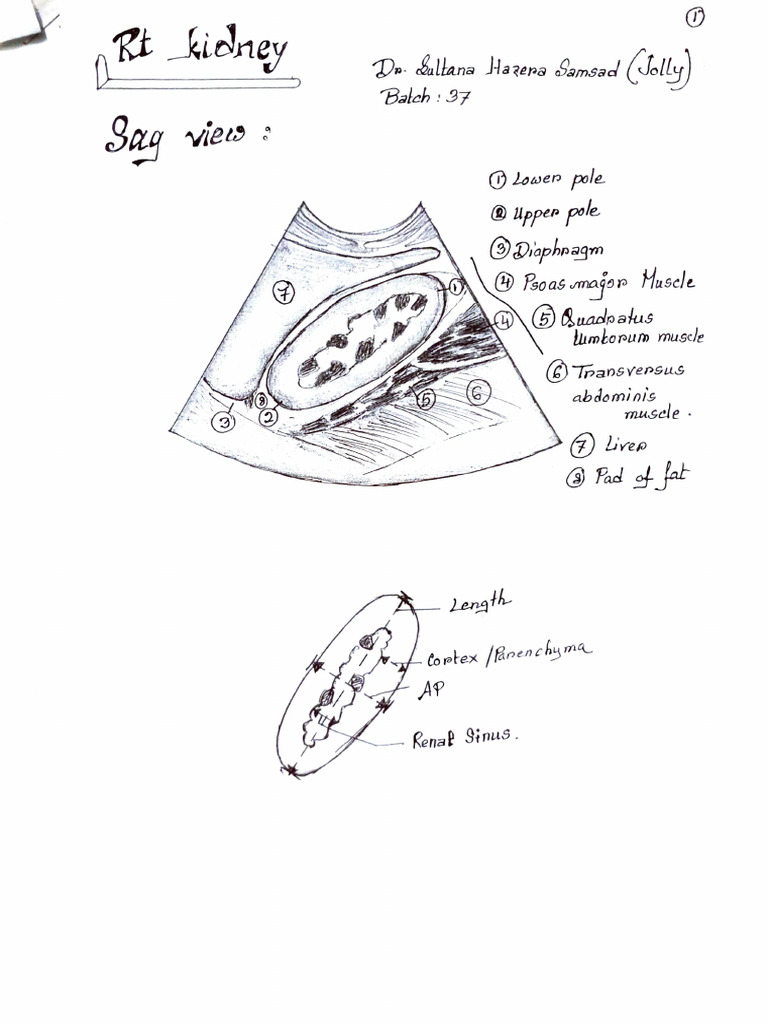 1
Rt kidney
Dr. Sultana Hazera Samsad (Jolly)
Batch : 37
Sag view :
1 Lower pole
2 Upper pole
3 Diaphragm
4 Psoas major Muscle
5 Quadratus
lumborum muscle
6 Transversus
abdominis
muscle.
7 Liver
8 Pad of fat
7
1
4
5
6
8
2
3
Length
Cortex / Parenchyma
AP
Renal Sinus.